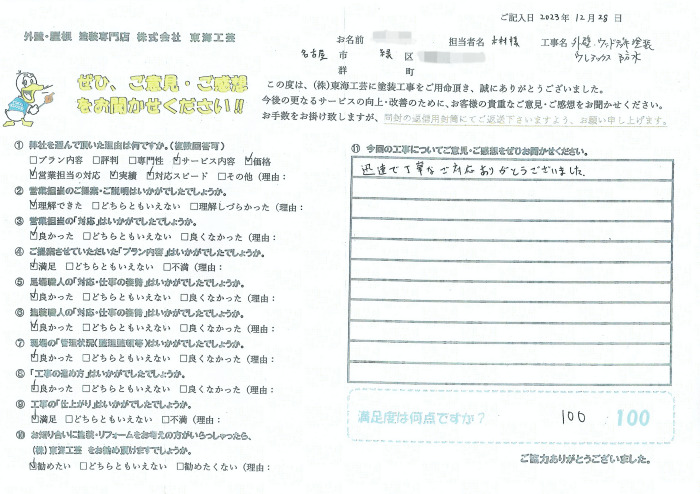 ご記入日 2023年 12月 28日
外壁・屋根 塗装専門店 株式会社 東海工芸
お名前
担当者名 木村様
工事名 外壁
名古屋 市 緑 区
防水
郡 町
ぜひ、ご意見・ご感想
をお聞かせください!!
この度は、(株)東海工芸に塗装工事をご用命頂き、誠にありがとうございました。
今後の更なるサービスの向上・改善のために、お客様の貴重なご意見・ご感想をお聞かせください。
お手数をお掛け致しますが、同封の返信用封筒にてご返送下さいますよう、お願い申し上げます。
① 弊社を選んで頂いた理由は何ですか。(複数回答可)
□プラン内容 □評判 □専門性 ☑サービス内容 ☑価格
☑営業担当の対応 ☑実績 ☑対応スピード □その他(理由:
② 営業担当のご提案・ご説明はいかがでしたでしょうか。
☑理解できた □どちらともいえない □理解しづらかった(理由:
③ 営業担当の「対応」はいかがでしたでしょうか。
☑良かった □どちらともいえない □良くなかった(理由:
④ ご提案させていただいた「プラン内容」はいかがでしたでしょうか。
☑満足 □どちらともいえない □不満(理由:
⑤ 足場職人の「対応・仕事の姿勢」はいかがでしたでしょうか。
☑良かった □どちらともいえない □良くなかった(理由:
⑥ 塗装職人の「対応・仕事の姿勢」はいかがでしたでしょうか。
☑良かった □どちらともいえない □良くなかった(理由:
⑦ 現場の「管理状況(整理整頓等)」はいかがでしたでしょうか。
☑良かった □どちらともいえない □良くなかった(理由:
⑧ 「工事の進め方」はいかがでしたでしょうか。
☑良かった □どちらともいえない □良くなかった(理由:
⑨ 工事の「仕上がり」はいかがでしたでしょうか。
☑満足 □どちらともいえない □不満(理由:
⑩ お知り合いに塗装・リフォームをお考えの方がいらっしゃったら、
(株)東海工芸 をお勧め頂けますでしょうか。
☑勧めたい □どちらともいえない □勧めたくない(理由:
⑪ 今回の工事についてご意見・ご感想をぜひお聞かせください。
迅速で丁寧なご対応ありがとうございました
満足度は何点ですか? 100 100
ご協力ありがとうございました。